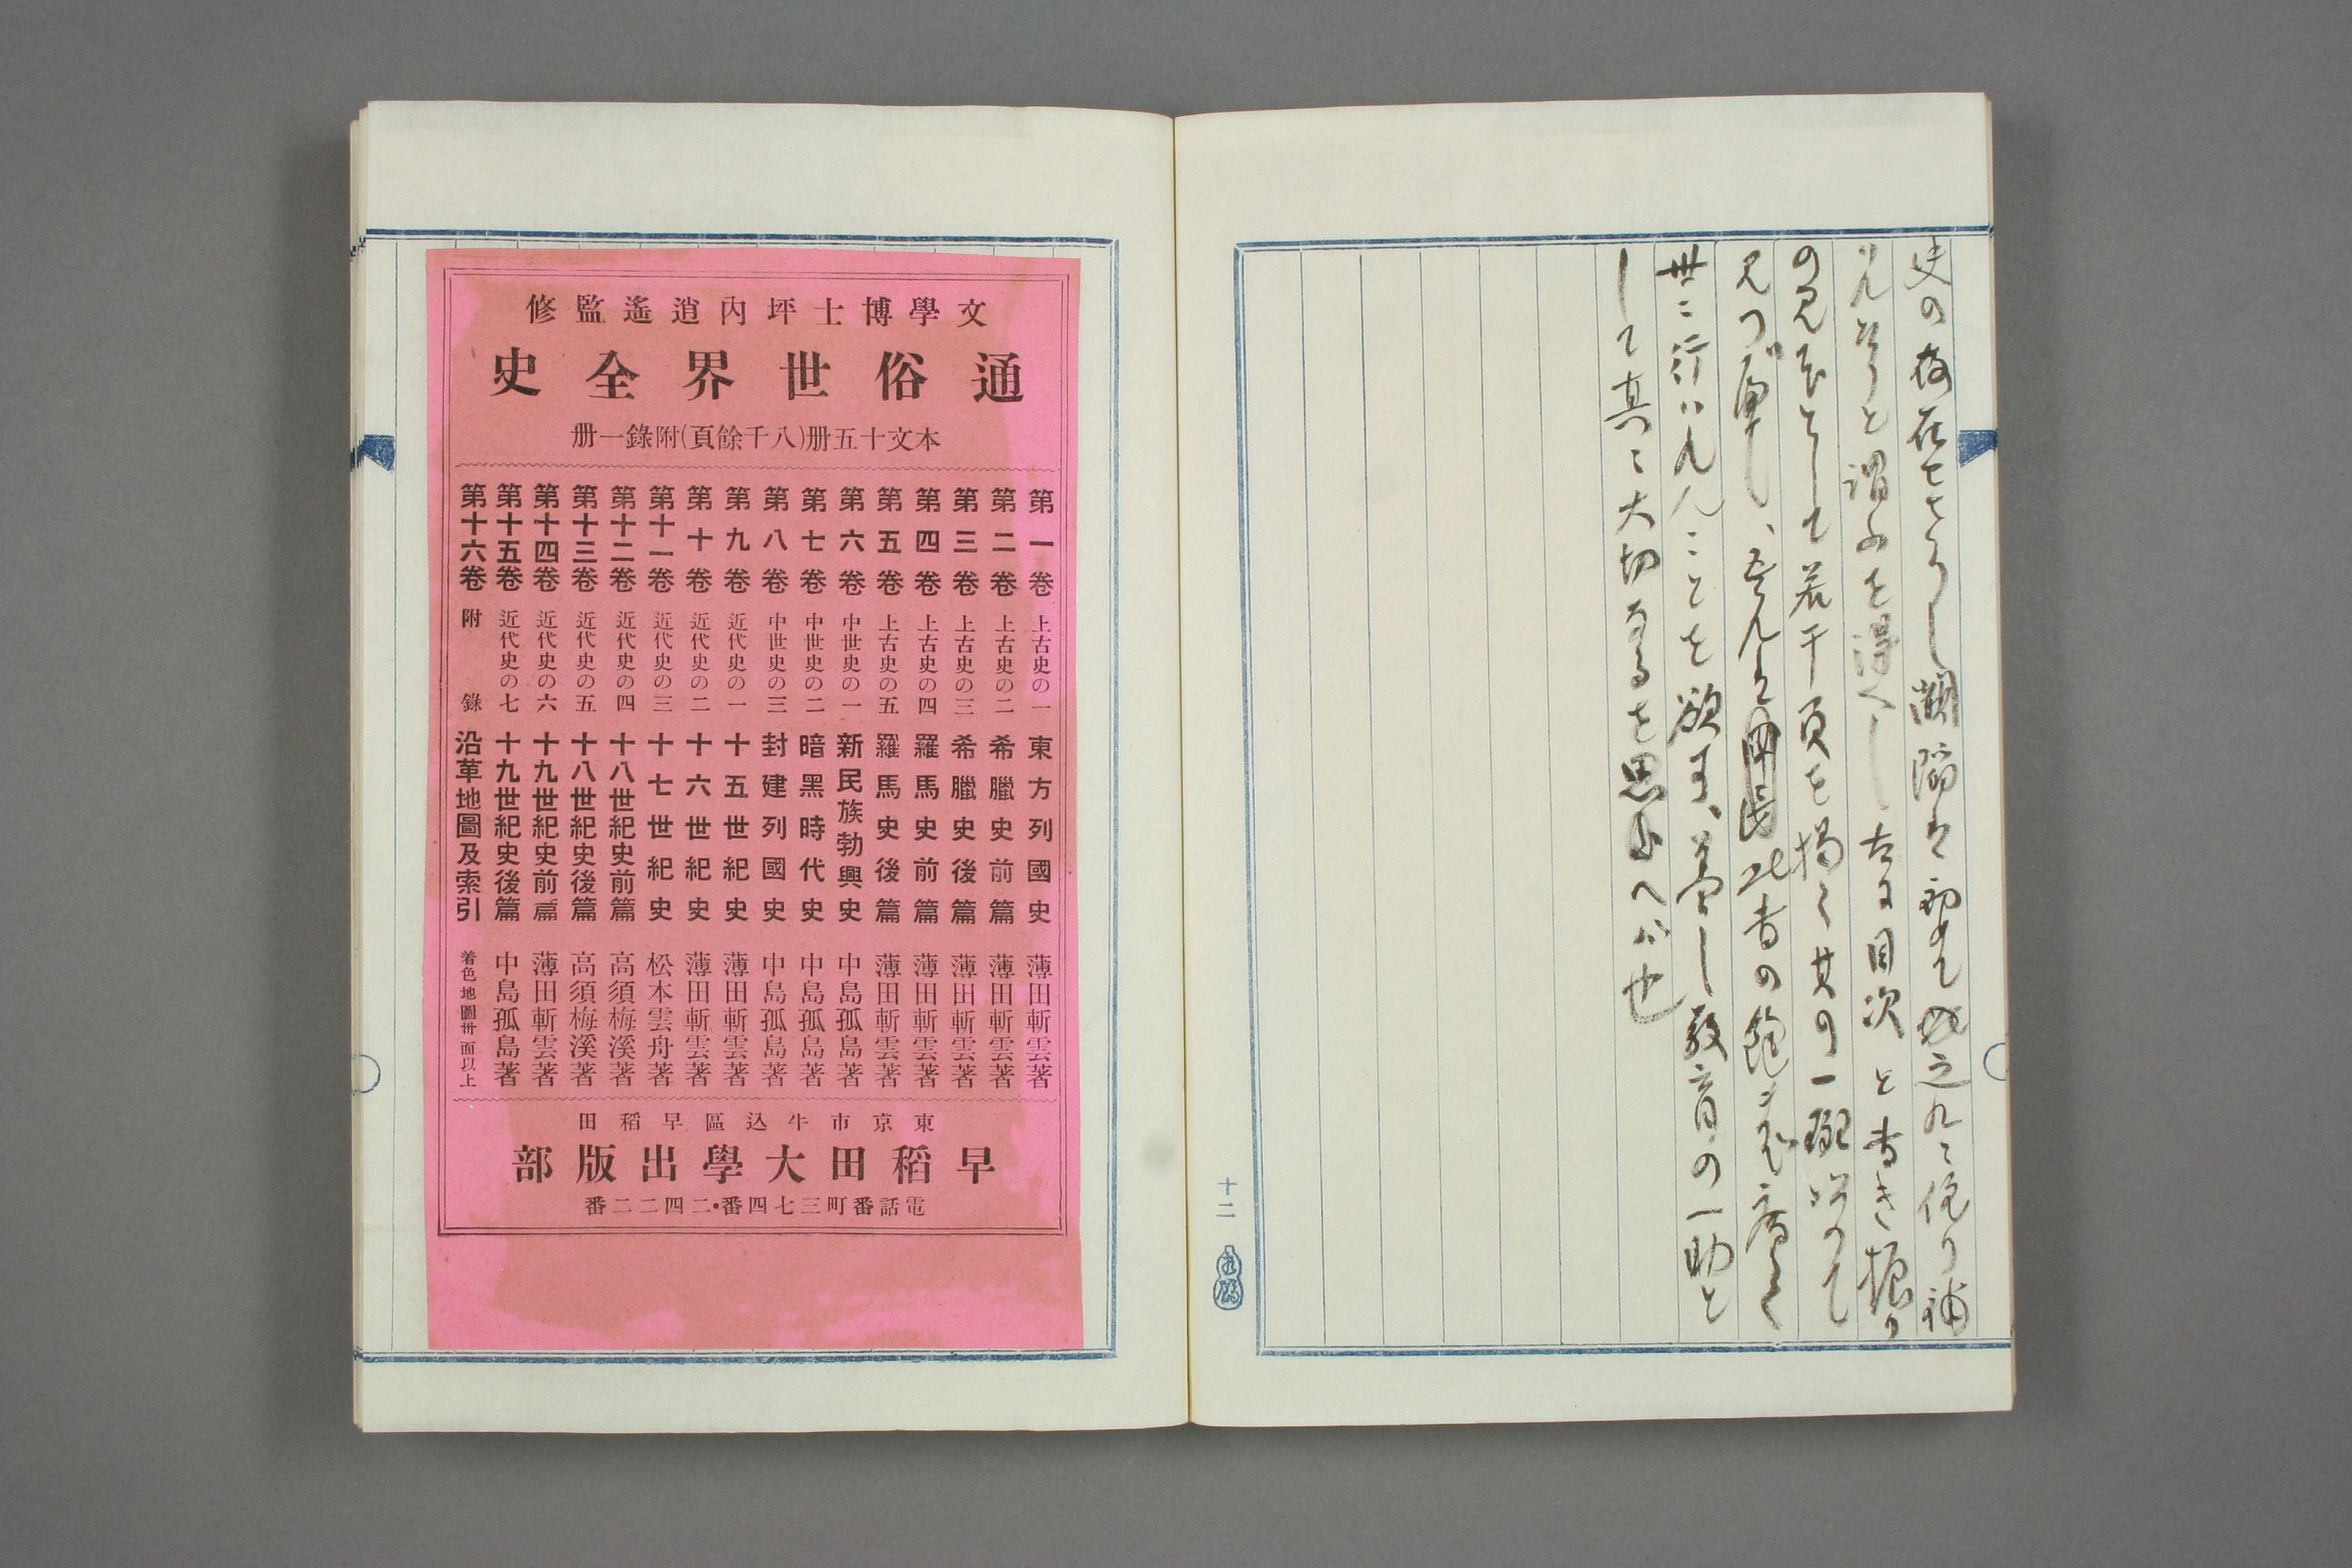 史の存在せさりし闕陥は初めて之れに依り補
はれたりと謂ふを得へし左に目次と書き振り
の見本として若干頁を掲く其の一斑以て
見つ可し、吾人は此書の飽まて広く
世に行はれんことを欲す、蓋し教育の一助と
して真に大切なるを思へは也
十二
文學博士坪內逍遙監修
通俗世界全史
本文十五册(八千餘頁)附錄一册
第一卷 上古史の一 東方列國史 薄田斬雲著
第二卷 上古史の二 希臘史前篇 薄田斬雲著
第三卷 上古史の三 希臘史後篇 薄田斬雲著
第四卷 上古史の四 羅馬史前篇 薄田斬雲著
第五卷 上古史の五 羅馬史後篇 薄田斬雲著
第六卷 中世史の一 新民族勃興史 中島孤島著
第七卷 中世史の二 暗黑時代史 中島孤島著
第八卷 中世史の三 封建列國史 中島孤島著
第九卷 近代史の一 十五世紀史 薄田斬雲著
第十卷 近代史の二 十六世紀史 薄田斬雲著
第十一卷 近代史の三 十七世紀史 松本雲舟著
第十二卷 近代史の四 十八世紀史前篇 高須梅溪著
第十三卷 近代史の五 十八世紀史後篇 高須梅溪著
第十四卷 近代史の六 十九世紀史前篇 薄田斬雲著
第十五卷 近代史の七 十九世紀史後篇 中島孤島著
第十六卷 附錄 沿革地圖及索引 着色地圖卅面以上
東京市牛込區早稻田
早稻田大學出版部
電話番町三七四番・二四二二番